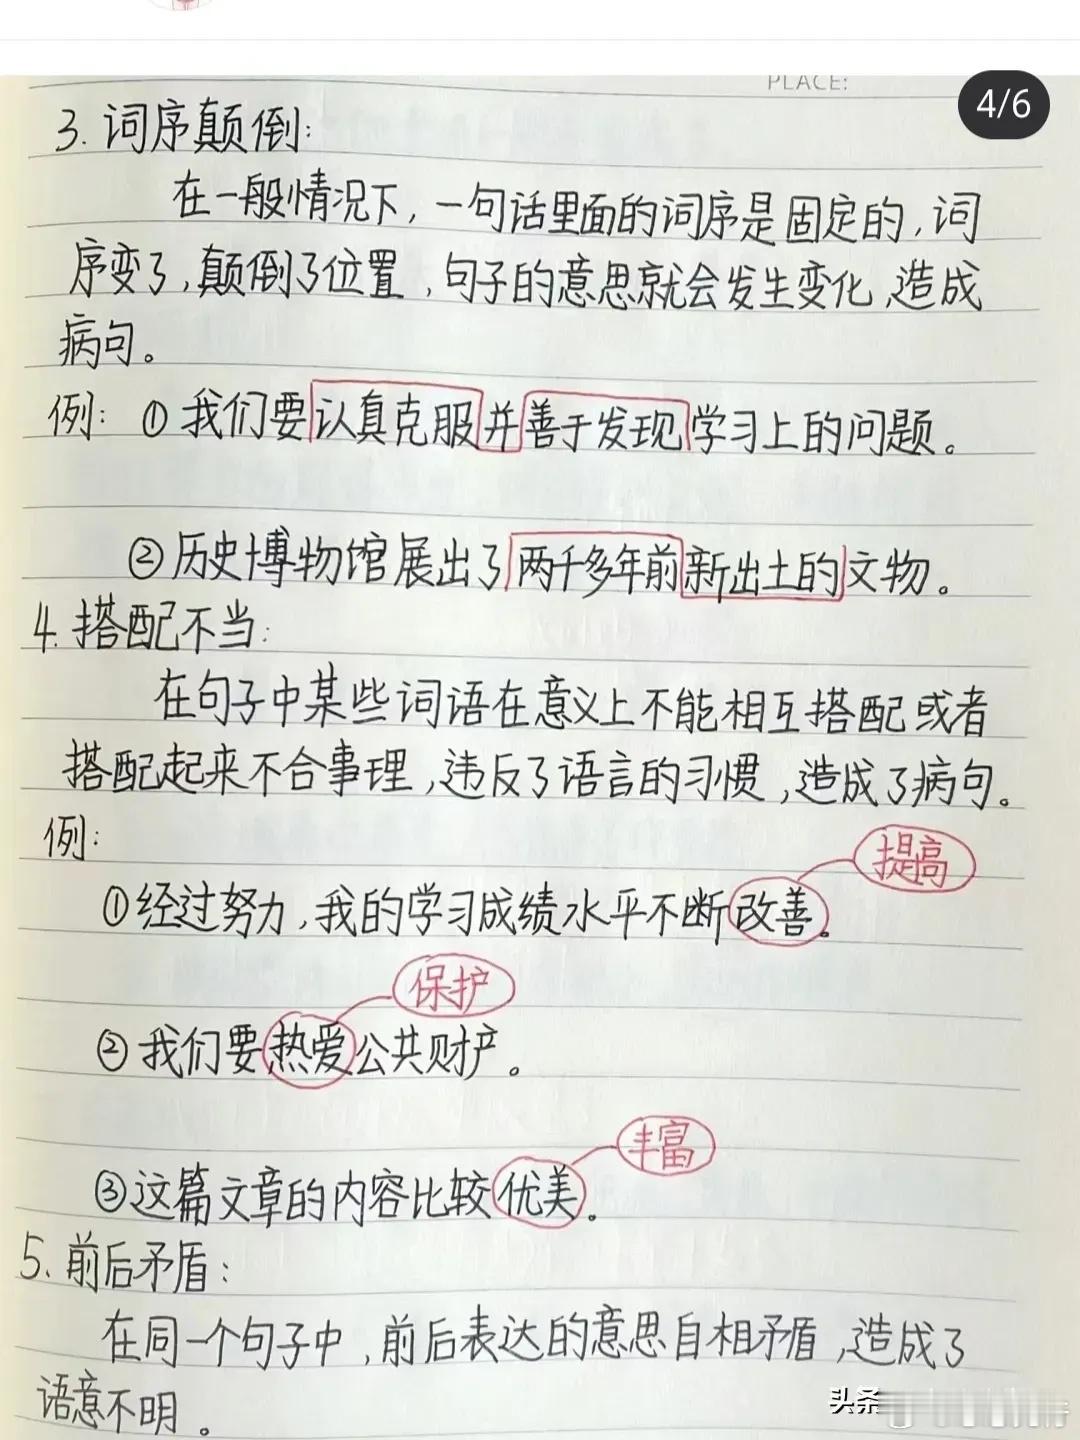 PLACE:
4/6
3. 词序颠倒:
在一般情况下, 一句话里面的词序是固定的, 词
序变了, 颠倒了位置, 句子的意思就会发生变化, 造成
病句。
例: ①我们要认真克服并善于发现学习上的问题。
②历史博物馆展出了两千多年前新出土的文物。
4. 搭配不当:
在句子中某些词语在意义上不能相互搭配或者
搭配起来不合事理, 违反了语言的习惯, 造成了病句。
例:
提高
①经过努力, 我的学习成绩水平不断改善。
保护
②我们要热爱公共财产。
丰富
③这篇文章的内容比较优美。
5. 前后矛盾:
在同一个句子中, 前后表达的意思自相矛盾, 造成了
语意不明。
头条